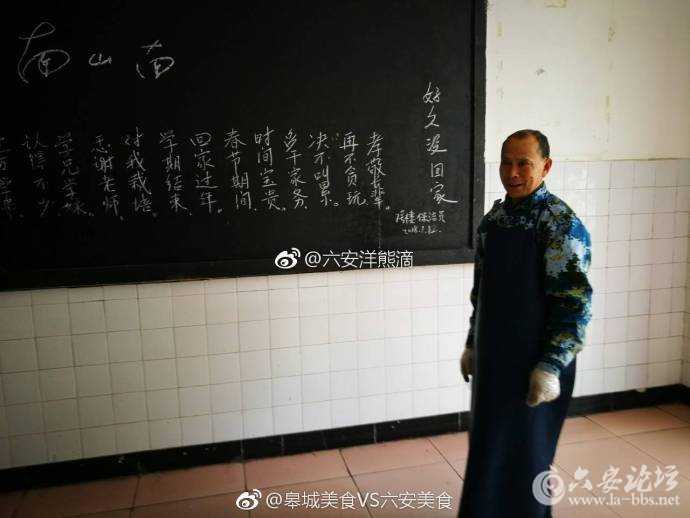 南山南
认识不少
学兄学妹.
感谢老师.
对我栽培.
学期结束.
回家过年.
春节期间.
时间宝贵.
多干家务.
决不叫累.
再不贪玩.
孝敬长辈.
好久没回家
保洁员
@六安洋熊滴
@皋城美食VS六安美食
六安论坛
www.la-bbs.net